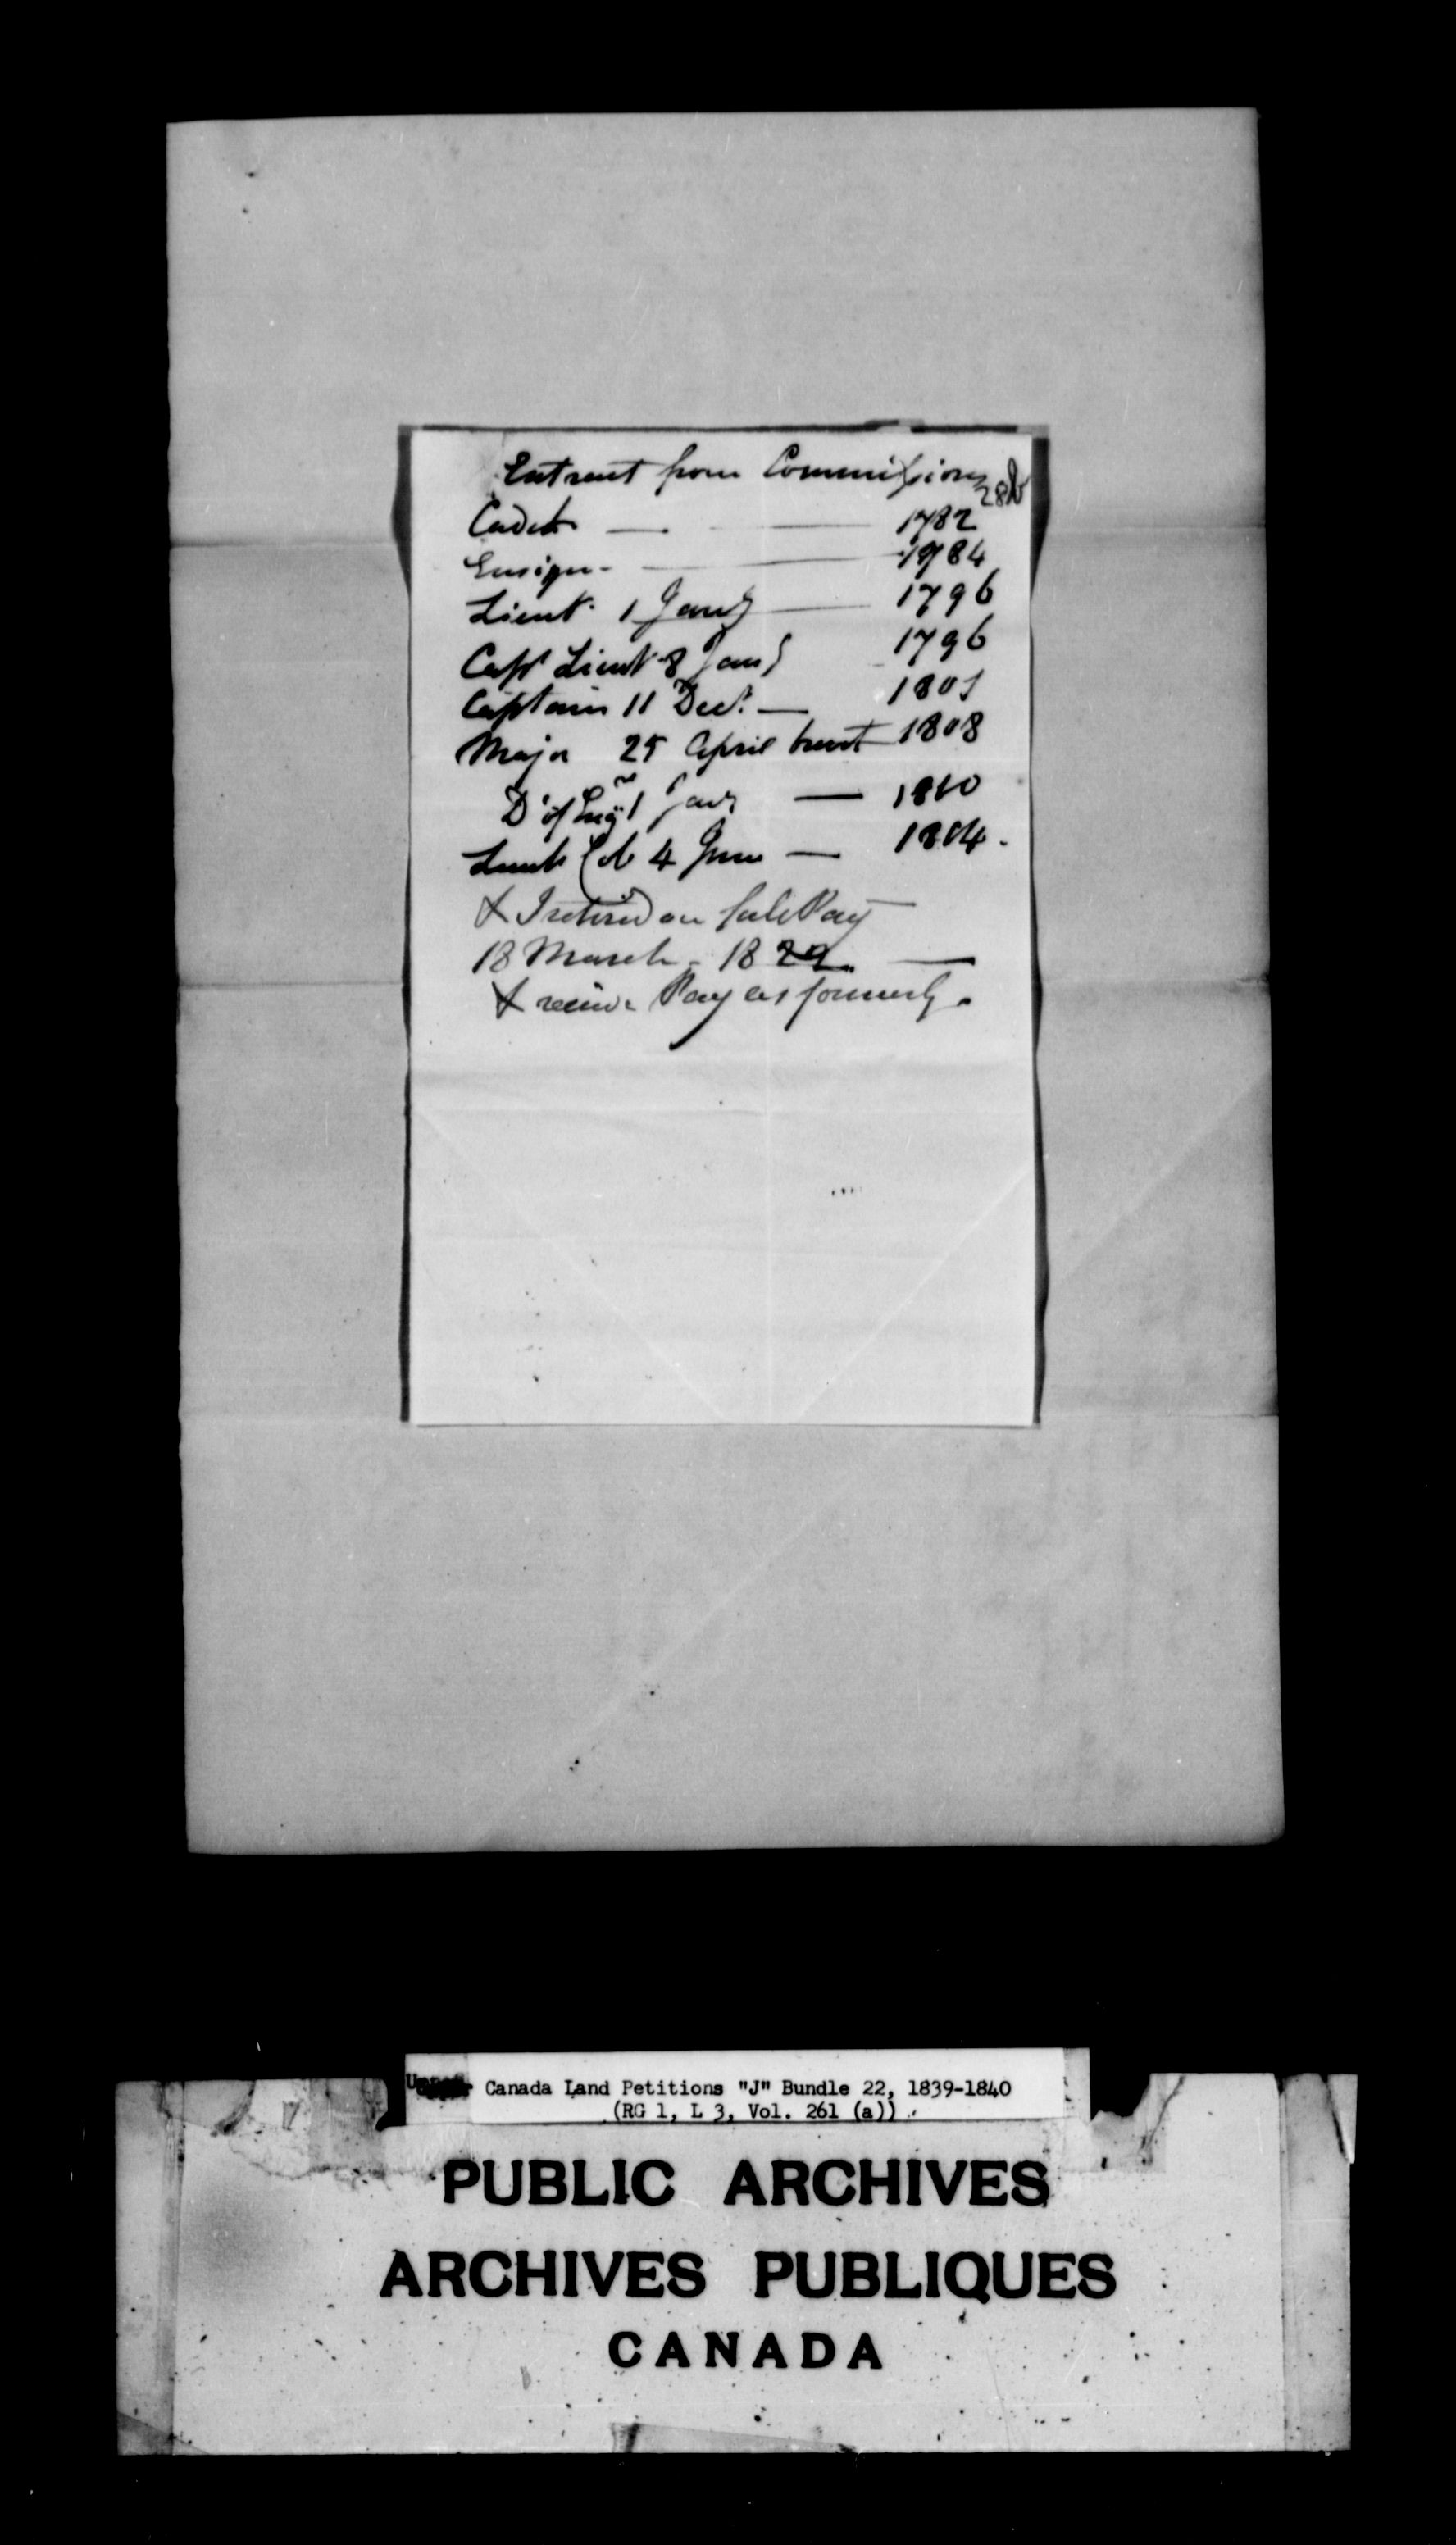 Extract from Commissions
28b
Cadet — 1782
Ensign - — 1784
Lieut. 1 Jany — 1796
Capt Lieut 8 Jany 1796
Captain 11 Decr. — 1801
Major 25 April brevt 1808
Do of Regt 1 Jany — 1810
Lieut Col 4 June — 1814.
& I retired on full Pay —
18 March - 1822 —
& receive Pay as formerly.
Upper Canada Land Petitions "J" Bundle 22, 1839-1840
(RG 1, L 3, Vol. 261 (a))
PUBLIC ARCHIVES
ARCHIVES PUBLIQUES
CANADA